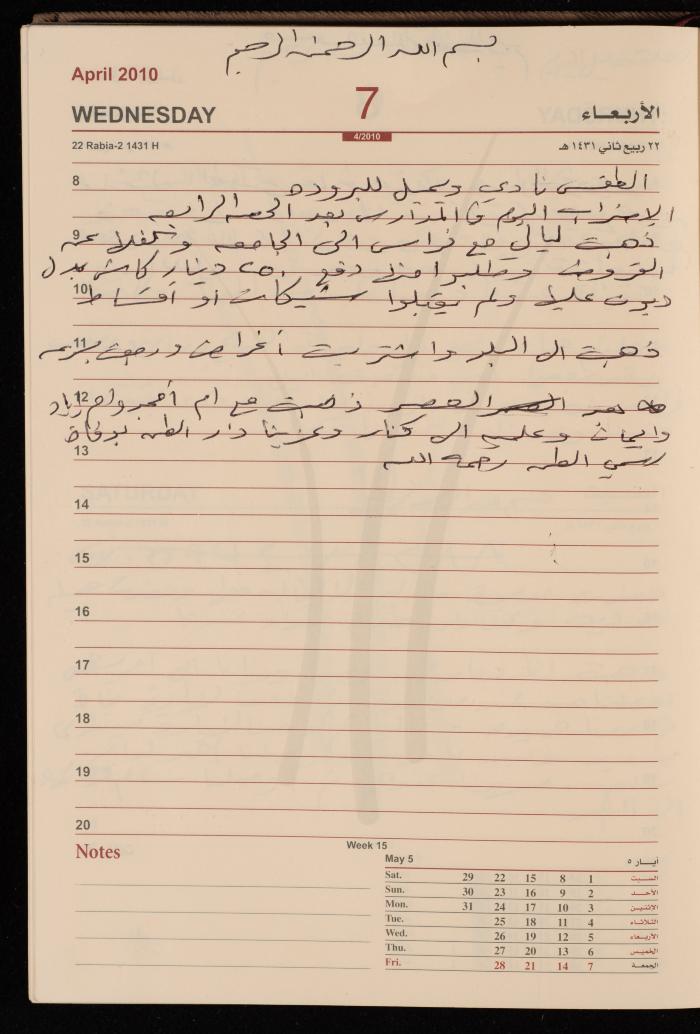 بسم الله الرحمن الرحيم
April 2010
WEDNESDAY 7 الأربعاء
4/2010
22 Rabia-2 1431 H ٢٢ ربيع ثاني ١٤٣١ هـ
8 الطقس نادي ويميل للبروده
الاضراب اليوم في المدارس بعد الحصه الرابعه
9 ذهبت ليالي مع فراس الى الجامعه
القروض وطلبوا منها دفع ٢٥٠ دينار كاش بدل
10 ديون عليها ولم يقبلوا شيكات أو أقساط
11 ذهبت الى البلد واشتريت أغراض ورجعت
12 بعد العصر ذهبت مع ام أمجد وام زياد
وايمان وعلميه الى وعزينا دار الطه بوفاة
13 رسمي الطه رحمه الله
14
15
16
17
18
19
20
Notes
Week 15
May 5 أيــار ٥
Sat. 29 22 15 8 1 السبت
Sun. 30 23 16 9 2 الأحد
Mon. 31 24 17 10 3 الإثنين
Tue. 25 18 11 4 الثلاثاء
Wed. 26 19 12 5 الأربعاء
Thu. 27 20 13 6 الخميس
Fri. 28 21 14 7 الجمعة